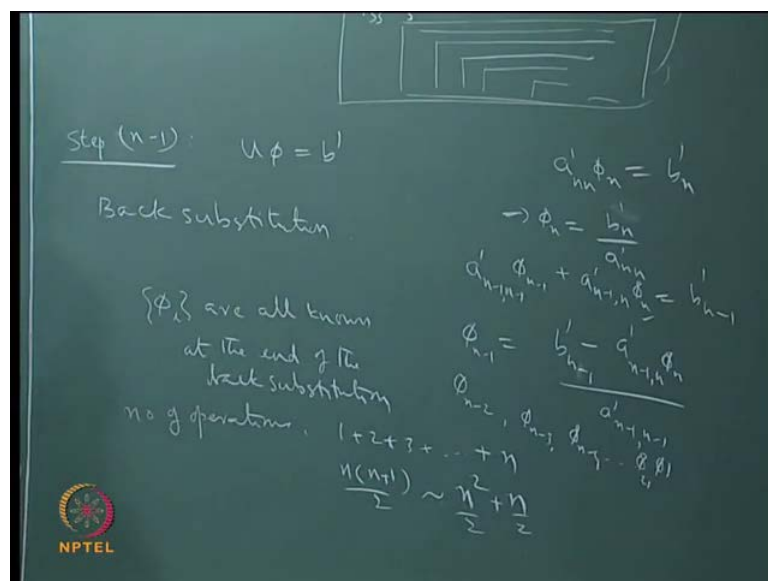 Step (n-1): Uφ = b'
Back substitution.
{φᵢ} are all known
at the end of the
back substitution
no of operations. 1+2+3+...+n
n(n+1)/2 ~ n²/2 + n/2
a'ₙₙ φₙ = b'ₙ
→ φₙ = b'ₙ / a'ₙₙ
a'ₙ₋₁,ₙ₋₁ φₙ₋₁ + a'ₙ₋₁,ₙ φₙ = b'ₙ₋₁
φₙ₋₁ = (b'ₙ₋₁ - a'ₙ₋₁,ₙ φₙ) / a'ₙ₋₁,ₙ₋₁
φₙ₋₂, φₙ₋₃,
NPTEL